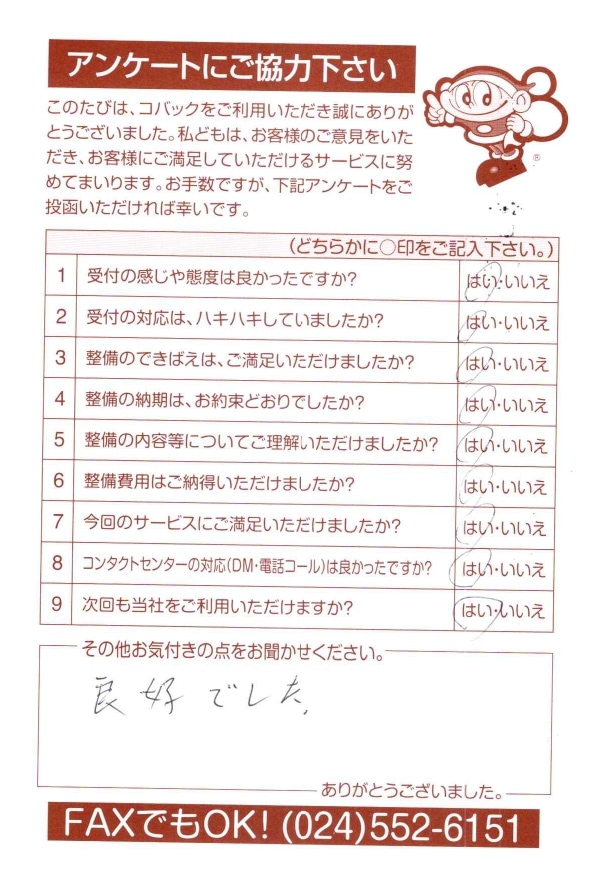 アンケートにご協力下さい
このたびは、コバックをご利用いただき誠にありが
とうございました。私どもは、お客様のご意見をいた
だき、お客様にご満足していただけるサービスに努
めてまいります。お手数ですが、下記アンケートをご
投函いただければ幸いです。
®
(どちらかに○印をご記入下さい。)
1 受付の感じや態度は良かったですか? はい・いいえ
2 受付の対応は、ハキハキしていましたか? はい・いいえ
3 整備のできばえは、ご満足いただけましたか? はい・いいえ
4 整備の納期は、お約束どおりでしたか? はい・いいえ
5 整備の内容等についてご理解いただけましたか? はい・いいえ
6 整備費用はご納得いただけましたか? はい・いいえ
7 今回のサービスにご満足いただけましたか? はい・いいえ
8 コンタクトセンターの対応(DM・電話コール)は良かったですか? はい・いいえ
9 次回も当社をご利用いただけますか? はい・いいえ
その他お気付きの点をお聞かせください。
良好でした。
ありがとうございました。
FAXでもOK! (024)552-6151